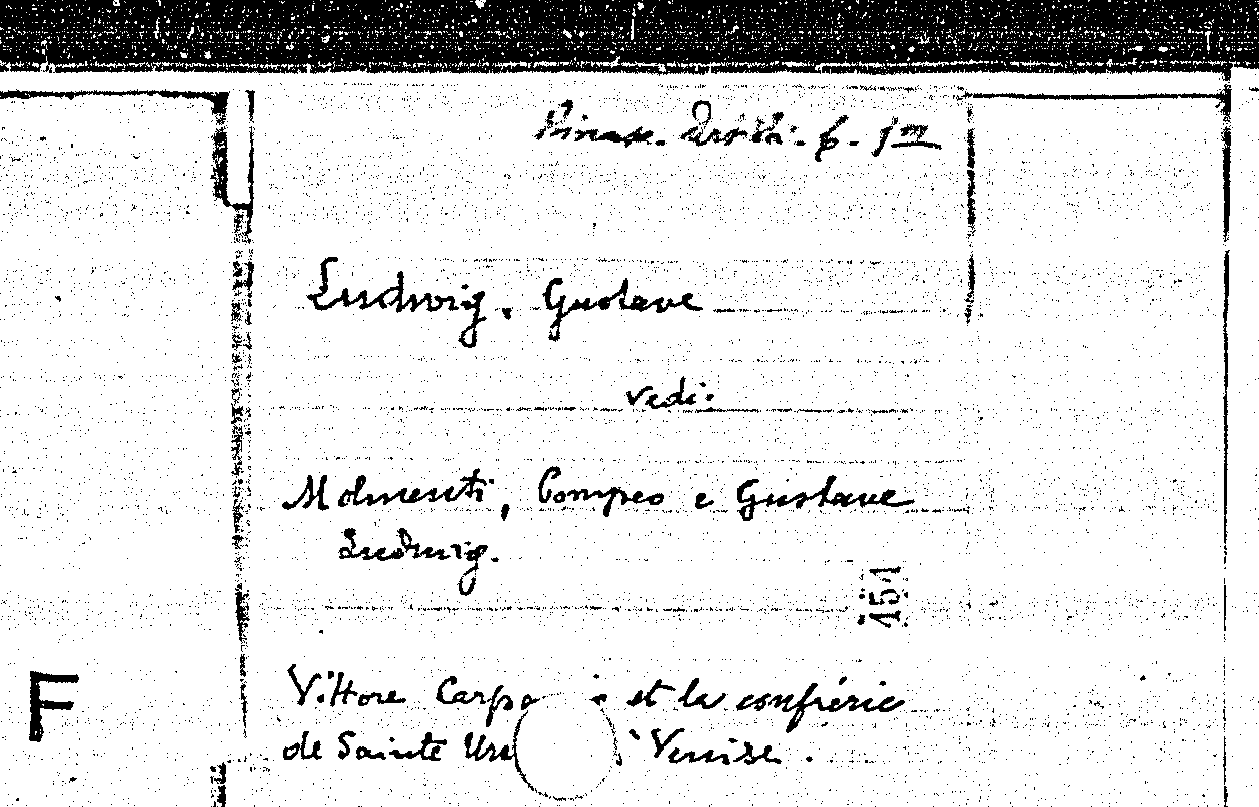 Ludwig, Gustave
vedi:
Molmenti, Pompeo e Gustave
Ludwig.
451
Vittore Carpa et la confrérie
de Sainte Urs à Venise.
F